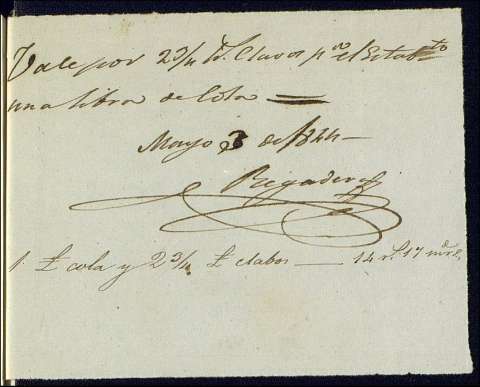 Vale por 2 3/4 lb. Clavos pa el Establto
una libra de Cola =
Mayo 3 de 1844 —
Regadera
1 £ cola y 2 3/4 £ clabos — 14 rl 17 mrs.